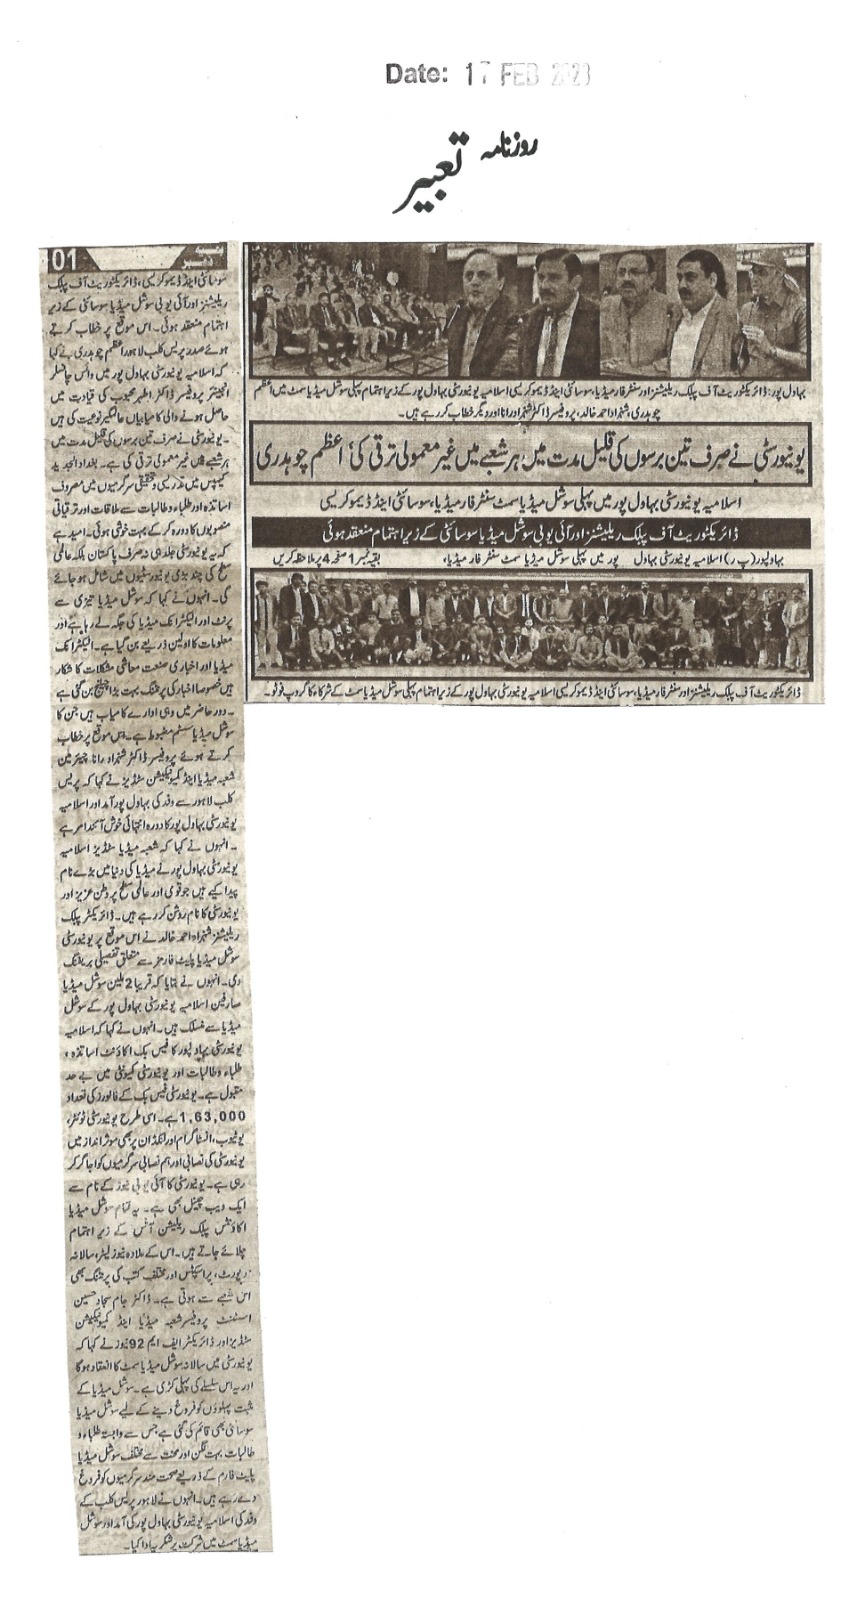 Date: 17 FEB 2023
روزنامہ تعبیر
بہاول پور: ڈائریکٹوریٹ آف پبلک ریلیشنز اور سنٹر فار میڈیا، سوسائٹی اینڈ ڈیموکریسی اسلامیہ یونیورسٹی بہاول پور کے زیر اہتمام پہلی سوشل میڈیا سمٹ میں اعظم
چوہدری، شہزاد احمد خالد، پروفیسر ڈاکٹر شہزاد رانا اور دیگر خطاب کر رہے ہیں۔
یونیورسٹی نے صرف تین برسوں کی قلیل مدت میں ہر شعبے میں غیر معمولی ترقی کی، اعظم چوہدری
اسلامیہ یونیورسٹی بہاول پور میں پہلی سوشل میڈیا سمٹ سنٹر فار میڈیا، سوسائٹی اینڈ ڈیموکریسی
ڈائریکٹوریٹ آف پبلک ریلیشنز اور آئی یو بی سوشل میڈیا سوسائٹی کے زیر اہتمام منعقد ہوئی
بہاولپور (پ ر) اسلامیہ یونیورسٹی بہاول پور میں پہلی سوشل میڈیا سمٹ سنٹر فار میڈیا، بقیہ نمبر 1 صفحہ 4 پر ملاحظہ کریں
ڈائریکٹوریٹ آف پبلک ریلیشنز اور سنٹر فار میڈیا، سوسائٹی اینڈ ڈیموکریسی اسلامیہ یونیورسٹی بہاول پور کے زیر اہتمام پہلی سوشل میڈیا سمٹ کے شرکاء کا گروپ فوٹو۔
بقیہ نمبر 01
سوسائٹی اینڈ ڈیموکریسی، ڈائریکٹوریٹ آف پبلک
ریلیشنز اور آئی یو بی سوشل میڈیا سوسائٹی کے زیر
اہتمام منعقد ہوئی۔ اس موقع پر خطاب کرتے
ہوئے صدر پریس کلب لاہور اعظم چوہدری نے کہا
کہ اسلامیہ یونیورسٹی بہاول پور میں وائس چانسلر
انجینئر پروفیسر ڈاکٹر اطہر محبوب کی قیادت میں
حاصل ہونے والی کامیابیاں عالمگیر نوعیت کی ہیں
۔ یونیورسٹی نے صرف تین برسوں کی قلیل مدت میں
ہر شعبے میں غیر معمولی ترقی کی ہے۔ بغداد الجدید
کیمپس میں تدریسی و تحقیقی سرگرمیوں میں مصروف
اساتذہ اور طلباء و طالبات سے ملاقات اور ترقیاتی
منصوبوں کا دورہ کر کے بہت خوشی ہوئی۔ امید ہے
کہ یہ یونیورسٹی جلد ہی نہ صرف پاکستان بلکہ عالمی
سطح کی چند بڑی یونیورسٹیوں میں شامل ہو جائے
گی۔ انہوں نے کہا کہ سوشل میڈیا تیزی سے
پرنٹ اور الیکٹرانک میڈیا کی جگہ لے رہا ہے اور
معلومات کا اولین ذریعے بن گیا ہے۔ الیکٹرانک
میڈیا اور اخباری صنعت معاشی مشکلات کا شکار
ہیں خصوصا اخبار کی پرنٹنگ بہت بڑا چیلنج بن گئی ہے
۔ دور حاضر میں وہی ادارے کامیاب ہیں جن کا
سوشل میڈیا سسٹم مضبوط ہے۔ اس موقع پر خطاب
کرتے ہوئے پروفیسر ڈاکٹر شہزاد رانا چیئرمین
شعبہ میڈیا اینڈ کمیونیکیشن سٹڈیز نے کہا کہ پریس
کلب لاہور سے وفد کی بہاول پور آمد اور اسلامیہ
یونیورسٹی بہاول پور کا دورہ انتہائی خوش آئند امر ہے
۔ انہوں نے کہا کہ شعبہ میڈیا سٹڈیز اسلامیہ
یونیورسٹی بہاول پور نے میڈیا کی دنیا میں بڑے نام
پیدا کیے ہیں جو قومی اور عالمی سطح پر وطن عزیز اور
یونیورسٹی کا نام روشن کر رہے ہیں۔ ڈائریکٹر پبلک
ریلیشنز شہزاد احمد خالد نے اس موقع پر یونیورسٹی
سوشل میڈیا پلیٹ فارمز سے متعلق تفصیلی بریفنگ
دی۔ انہوں نے بتایا کہ قریبا 2 ملین سوشل میڈیا
صارفین اسلامیہ یونیورسٹی بہاول پور کے سوشل
میڈیا سے منسلک ہیں۔ انہوں نے کہا کہ اسلامیہ
یونیورسٹی بہاولپور کا فیس بک اکاؤنٹ اساتذہ،
طلباء و طالبات اور یونیورسٹی کمیونٹی میں بے حد
مقبول ہے۔ یونیورسٹی فیس بک کے فالورز کی تعداد
1,63,000 ہے۔ اسی طرح یونیورسٹی ٹوئٹر،
یوٹیوب، انسٹاگرام اور لنکڈان پر بھی موثر انداز میں
یونیورسٹی کی نصابی اور ہم نصابی سرگرمیوں کو اجاگر کر
رہی ہے۔ یونیورسٹی کا آئی یو بی نیوز کے نام سے
ایک ویب چینل بھی ہے۔ یہ تمام سوشل میڈیا
اکاؤنٹس پبلک ریلیشن آفس کے زیر اہتمام
چلائے جاتے ہیں۔ اس کے علاوہ نیوز لیٹر، سالانہ
رپورٹ، پراسپکٹس اور مختلف کتب کی پرنٹنگ بھی
اس شعبے سے ہوتی ہے۔ ڈاکٹر جام سجاد حسین
اسسٹنٹ پروفیسر شعبہ میڈیا اینڈ کمیونیکیشن
سٹڈیز اور ڈائریکٹر ایف ایم 92 نیوز نے کہا کہ
یونیورسٹی میں سالانہ سوشل میڈیا سمٹ کا انعقاد ہوگا
اور یہ اس سلسلے کی پہلی کڑی ہے۔ سوشل میڈیا کے
مثبت پہلوؤں کو فروغ دینے کے لیے سوشل میڈیا
سوسائٹی بھی قائم کی گئی ہے جس سے وابستہ طلباء و
طالبات بہت لگن اور محنت سے مختلف سوشل میڈیا
پلیٹ فارم کے ذریعے صحت مند سرگرمیوں کو فروغ
دے رہے ہیں۔ انہوں نے لاہور پریس کلب کے
وفد کی اسلامیہ یونیورسٹی بہاول پور کی آمد اور سوشل
میڈیا سمٹ میں شرکت پر شکریہ ادا کیا۔